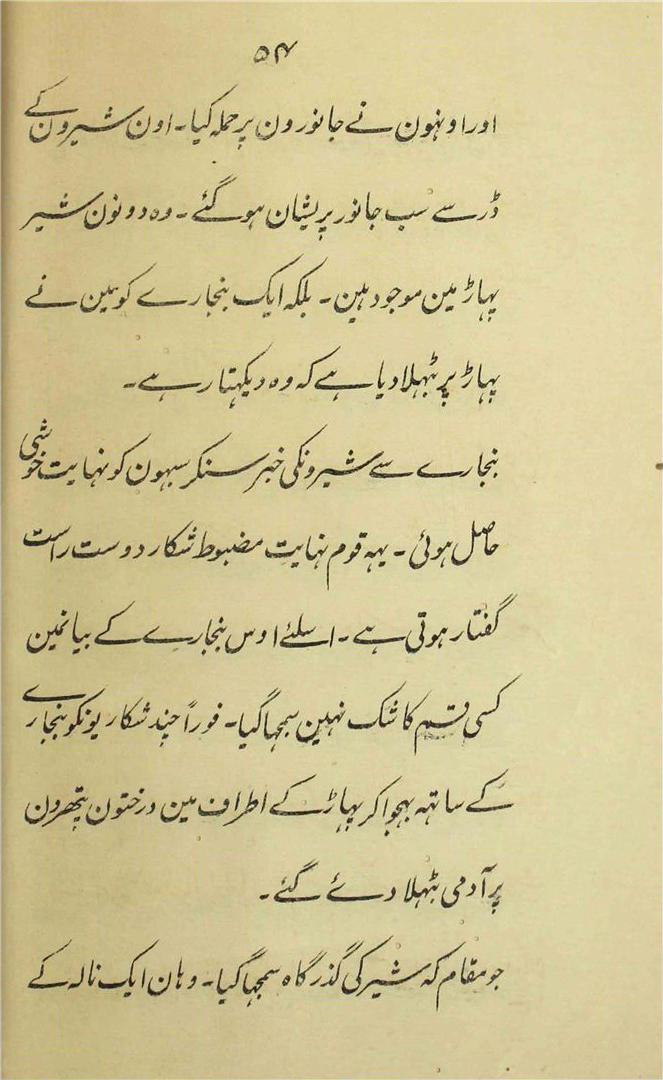 ۵۴
اور اونہون نے جانورون پر حملہ کیا۔ اون شیرون کے
ڈر سے سب جانور پریشان ہو گئے۔ وہ دونون شیر
پہاڑ مین موجود ہین۔ بلکہ ایک بنجارے کو مین نے
پہاڑ پر بٹھلا دیا ہے کہ وہ دیکھتا رہے۔
بنجارے سے شیرونکی خبر سنکر سبہون کو نہایت خوشی
حاصل ہوئی۔ یہہ قوم نہایت مضبوط شکار دوست راست
گفتار ہوتی ہے۔ اسلئے اوس بنجارے کے بیانمین
کسی قسم کا شک نہین سمجہا گیا۔ فوراً چند شکاریونکو بنجارے
کے ساتہہ بہجوا کر پہاڑ کے اطراف مین درختون پتھرون
پر آدمی بٹھلا دئے گئے۔
جو مقام کہ شیر کی گذرگاہ سمجہا گیا۔ وہان ایک نالہ کے